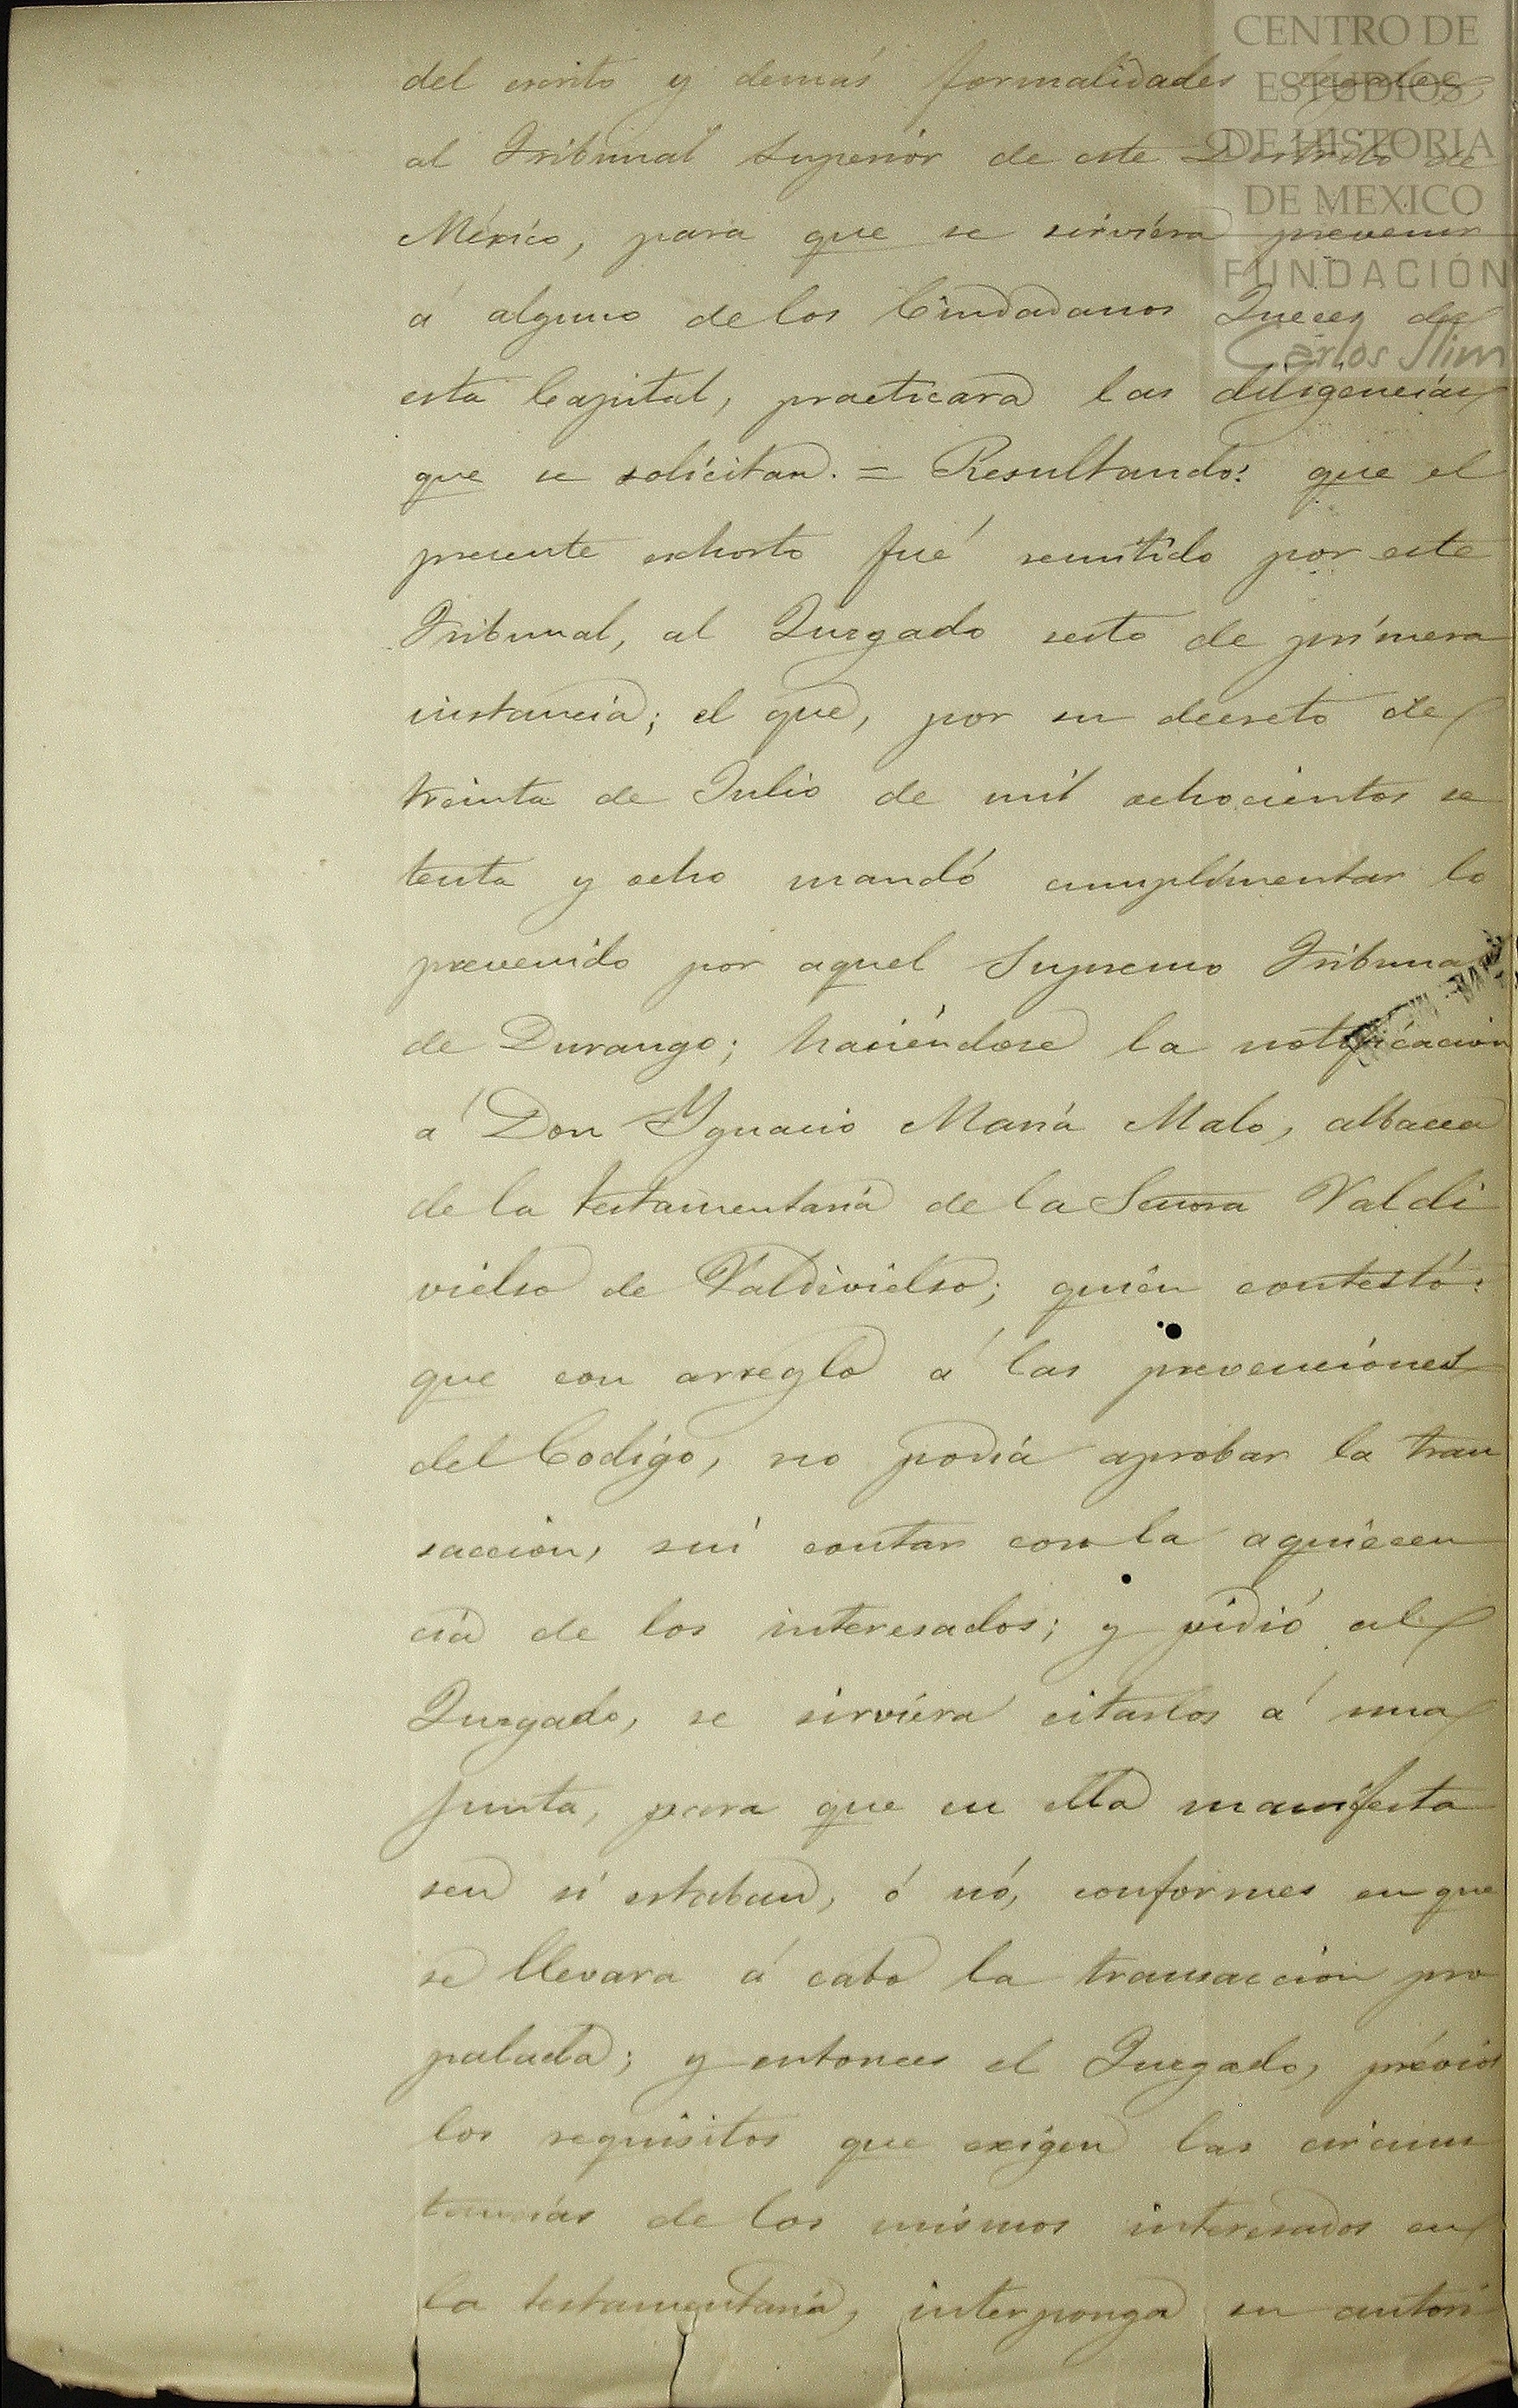 CENTRO DE
ESTUDIOS
DE HISTORIA
DE MEXICO
FUNDACIÓN
Carlos Slim
del escrito y demás formalidades legales
al Tribunal Superiór de este Distrito de
México, para que se sirviéra prevenir
á alguno de los Ciudadanos Jueces de
esta Capital, practicara las diligenciás
que se solicitan. = Resultando: que el
presente exhorto fué remitido por este
Tribunal, al Juzgado sesto de primera
instancia; el que, por su decreto de
treinta de Julio de mil ochocientos se
tenta y ocho mandó cumplimentar lo
prevenido por aquel Supremo Tribunal
de Durango; haciéndose la notificacion
á Don Ygnacio Maria Malo, albacea
de la testamentariá de la Señora Valdi
vielso de Valdivielso; quién contestó:
que con arreglo á las prevenciónes
del Codigo, no podiá aprobar la tran
saccion, sin contar con la aquiecen
ciá de los interesados; y pidió al
Juzgado, se sirviéra citarlos á una
junta, para que en ella manifesta
sen si estaban, ó nó, conformes en que
se llevara á cabo la transaccion pro
palada; y entonces el Juzgado, prévios
los requisitos que exigen las circuns
tanciás de los mismos interesados en
la testamentariá, interponga su autori